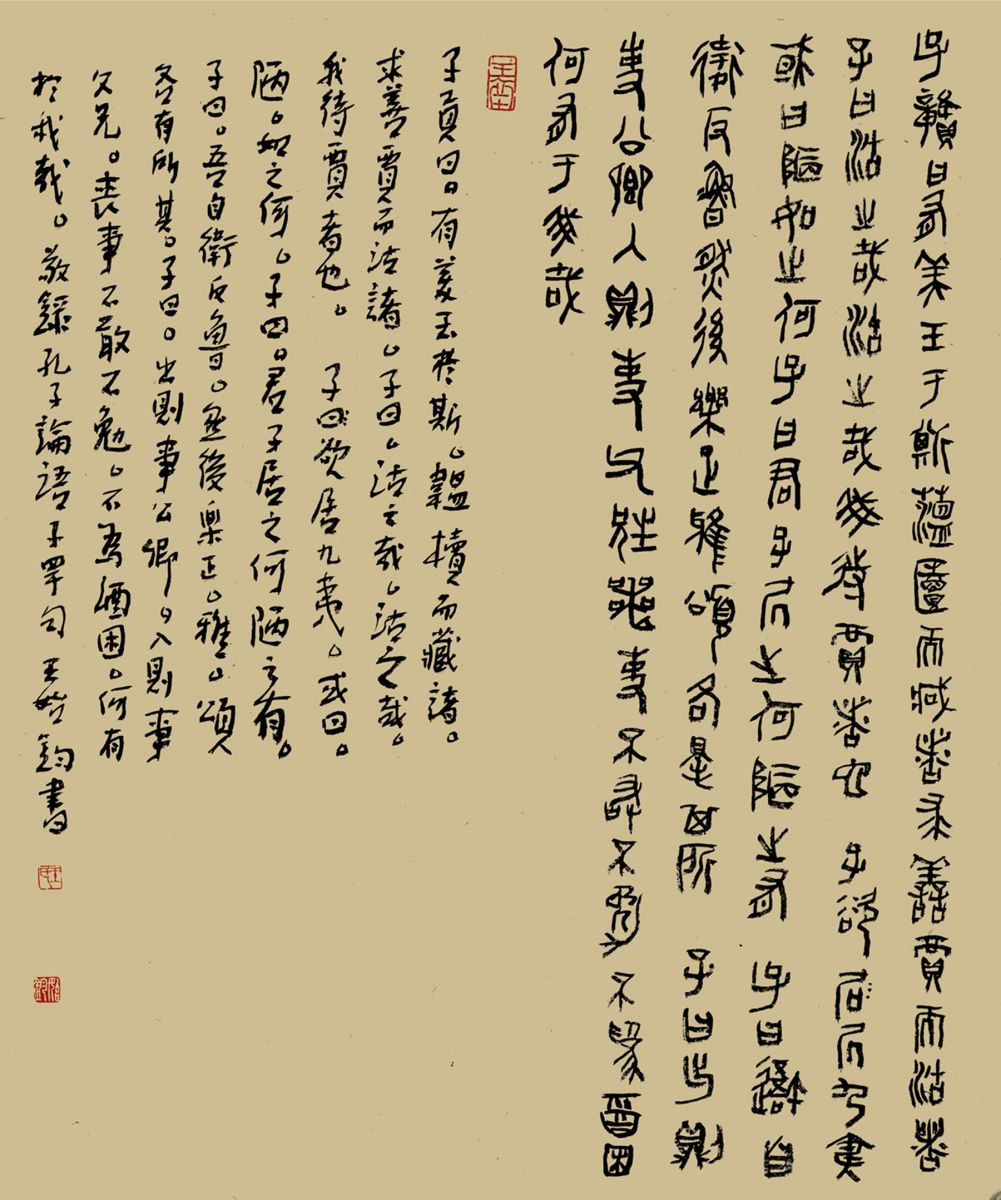 子贛曰有美玉于斯蘊匵而臧者求善賈而沽者
子曰沽之哉沽之哉我待賈者也 子欲居尻九夷
或曰陋如之何子曰君子尻之何陋之有 子曰吾自
衛反魯然後樂正雅頌各得其所 子曰出則
事公卿入則事父兄喪事不敢不勉不為酒困
何有于我哉
子貢曰。有美玉於斯。韞櫝而藏諸。
求善賈而沽諸。子曰。沽之哉。沽之哉。
我待賈者也。 子曰欲居九夷。或曰。
陋。如之何。子曰。君子居之何陋之有。
子曰。吾自衛反魯。然後樂正。雅。頌
各有所其。子曰。出則事公卿。入則事
父兄。喪事不敢不勉。不為酒困。何有
於我哉。敬錄孔子論語子罕句 王鈞書